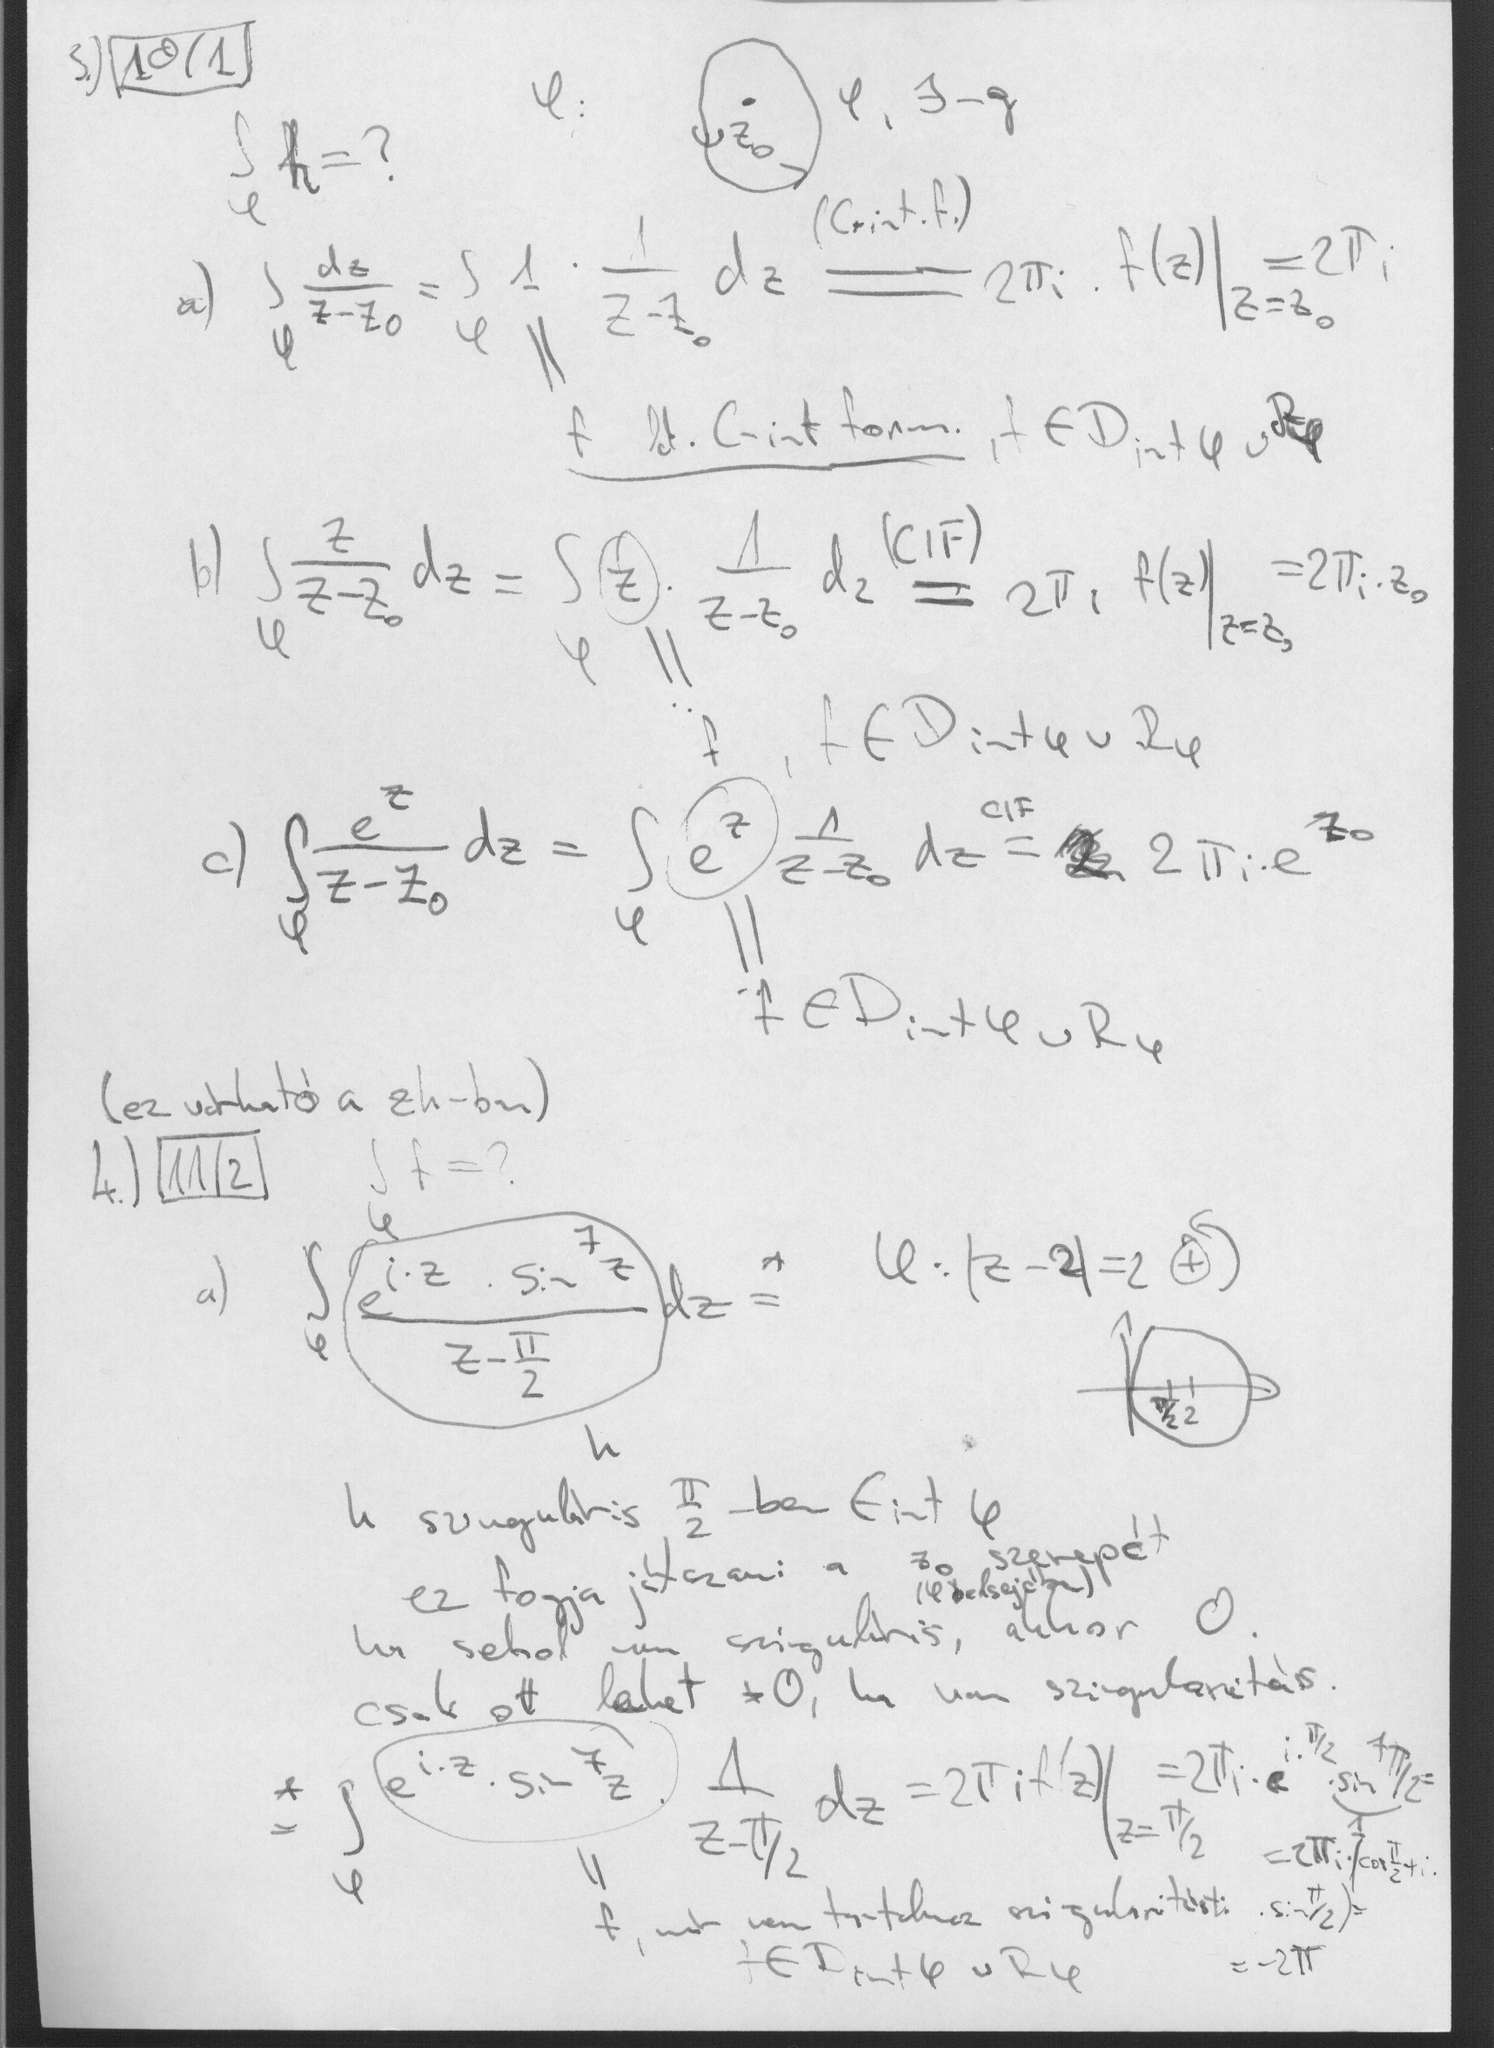 3.) 10/1
φ: z₀ φ, J-g
∫_φ h = ?
(C-int. f.)
a) ∫_φ dz/(z-z₀) = ∫_φ 1 · 1/(z-z₀) dz = 2πi · f(z)|_{z=z₀} = 2πi
f ld. C-int form., f ∈ D_{int φ ∪ R_φ}
b) ∫_φ z/(z-z₀) dz = ∫_φ z · 1/(z-z₀) dz (CIF) = 2πi f(z)|_{z=z₀} = 2πi·z₀
f, f ∈ D_{int φ ∪ R_φ}
c) ∫_φ e^z/(z-z₀) dz = ∫_φ e^z 1/(z-z₀) dz CIF = 2πi·e^{z₀}
f ∈ D_{int φ ∪ R_φ}
(ez várható a zh-ban)
4.) 11/2 ∫_φ f = ?
a) ∫_φ (e^{i·z} · sin⁷z)/(z-π/2) dz =* φ: |z-2|=2 (+)
π/2 2
h
h szinguláris π/2-ben ∈ int φ
ez fogja játszani a z₀ szerepét
(φ belsejében)
ha sehol nem szinguláris, akkor 0.
csak ott lehet ≠0, ha van szingularitás.
*= ∫_φ e^{i·z} · sin⁷z · 1/(z-π/2) dz = 2πi f(z)|_{z=π/2} = 2πi · e^{i·π/2} · sin⁷π/2 =
1
= 2πi · (cos π/2 + i ·
f, már nem tartalmaz szingularitást · sin π/2) =
f ∈ D_{int φ ∪ R_φ} = -2π